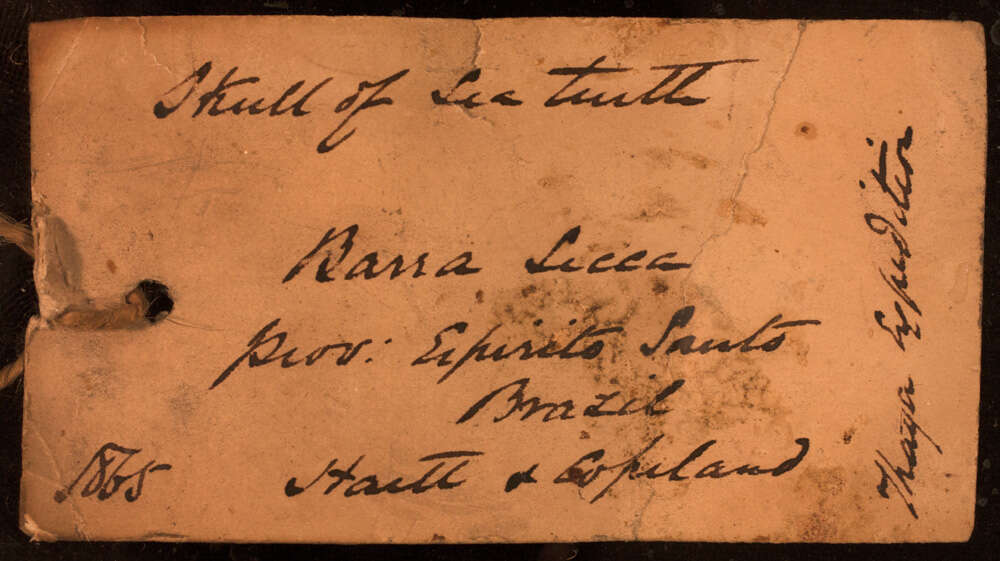 Skull of Sea turtle
Barra Secca
Prov: Espirito Santo
Brazil
1865 Hartt & Copeland
Thayer Expedition